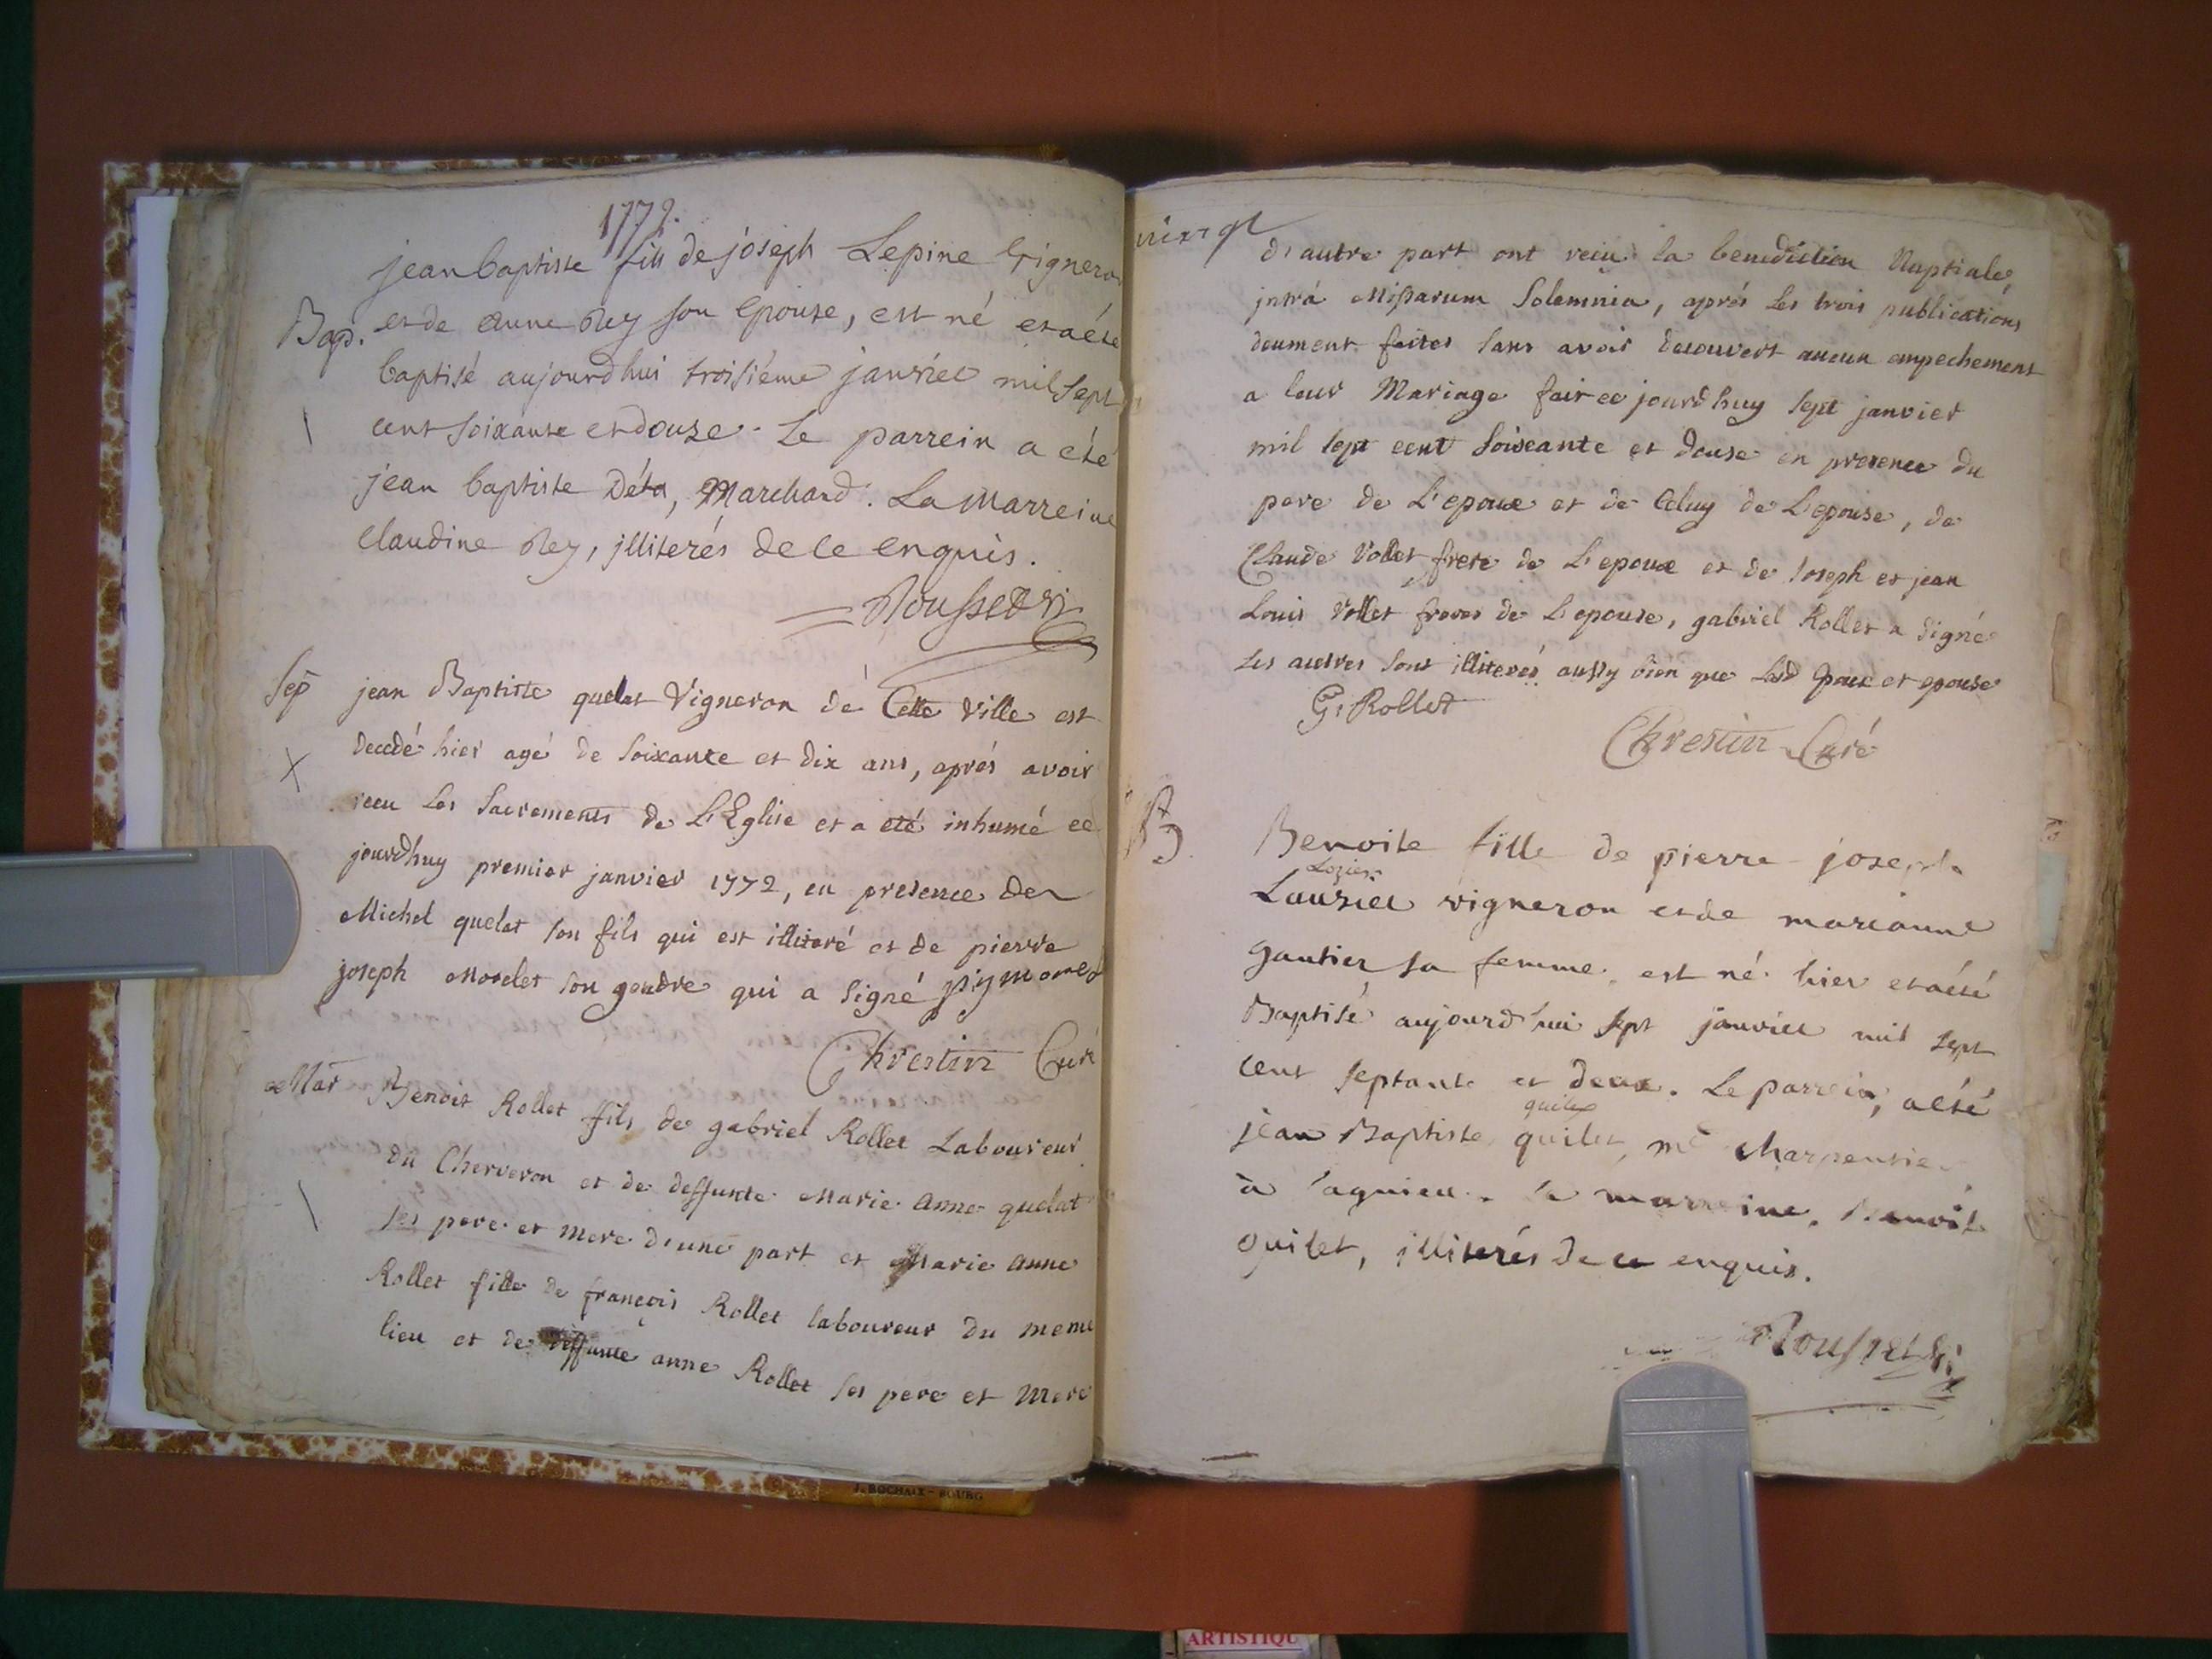 1772.
jean baptiste fils de joseph Lepine Vigneron
Bap. et de anne Rey son epouse, est né et a été
baptisé aujourdhui troisiéme janvier mil sept
cent soixante et douze. Le parrein a été
jean baptiste Déta, Marchand. La Marreine
Claudine Rey, jlliterés de ce enquis.
Rousset vi
Sep jean Baptiste quelat Vigneron de Cette Ville est
X decedé hier agé de soixante et dix ans, aprés avoir
receu Les Sacrements de L'Eglise et a eté inhumé ce
jourdhuy premier janvier 1772, en presence de
Michel quelat son fils qui est illiteré et de pierre
joseph Morelet son gendre qui a signé
Chrestin Curé
Mar Benoit Rollet fils de gabriel Rollet Laboureur
du Cherveron et de deffunte Marie Anne quelat
ses pere et mere d'une part et Marie Anne
Rollet fille de françois Rollet laboureur du meme
lieu et de deffunte anne Rollet ses pere et Mere
J. ROCHAIX - BOURG
d'autre part ont receu la benediction Nuptiale,
jntrá Missarum Solemnia, aprés Les trois publications
deument faites sans avoir decouvert aucun empechement
a leur Mariage fait ce jourdhuy sept janvier
mil sept cent soixante et douse en presence du
pere de L'epoux et de Celuy de L'epouse, de
Claude Rollet frere de L'epoux et de Joseph et jean
Louis Rollet freres de L'epouse, gabriel Rollet a signé
Les autres sont illiterés aussy bien que Lesd Epoux et epouse
G. Rollet
Chrestin Curé
B Benoite fille de pierre joseph
Lozier
Lauzier vigneron et de marianne
gautier sa femme, est né hier et a été
Baptisé aujourdhui sept janvier mil sept
cent septante et deux. Le parrein, a été
quilet
jean Baptiste quilet, me charpentier
à Lagnieu. la marreine, Benoite
quilet, jlliterés de ce enquis.
Rousset vi
ARTISTIQU